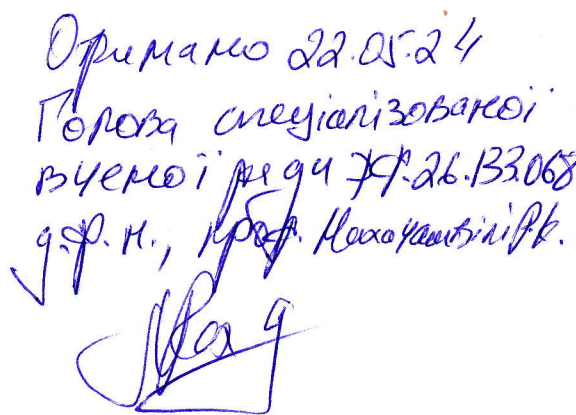 Отримано 22.05.24
Голова спеціалізованої
вченої ради ДФ.26.133.068
д.ф.н., проф. Махачашвілі Р.К.